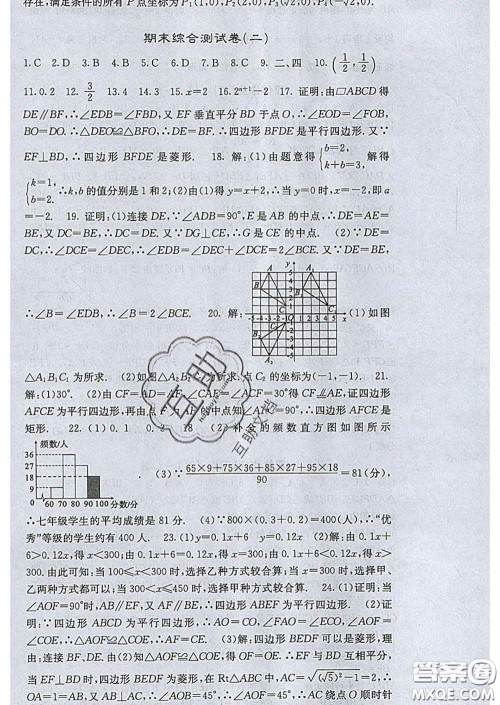 存在,满足条件的所有 P 点坐标为 P₁(1,0),P₂(2,0),P₃(√2,0),P₄(-√2,0).
期末综合测试卷(二)
1.C 2.D 3.B 4.B 5.C 6.D 7.B 8.C 9.二、四 10.(1/2,1/2)
11.0.2 12.3/2 13.5 14.3 15.x=2 16.2ⁿ⁺¹-2 17.证明:由□ABCD得
DE∥BF,∴∠EDB=∠FBD,又 EF 垂直平分 BD 于点 O,∴∠EOD=∠FOB,
BO=DO.∴△DEO≌△BFO,∴DE=BF.∴四边形 BFDE 是平行四边形.又∵
EF⊥BD,∴四边形 BFDE 是菱形. 18.解:(1)由题意得{b=2, k+b=3, 解得
{k=1, b=2. ∴k,b 的值分别是 1 和 2;(2)由(1)得 y=x+2,∴当 y=0 时,x=-2,即 a
=-2. 19.证明:(1)连接 DE,∵∠ADB=90°,E 是 AB 的中点,∴DE=AE=
BE,又 DC=BE,∴DC=DE.又∵DG⊥CE,∴G 是 CE 的中点. (2)∵DE=
DC,∴∠DCE=∠DEC,∴∠EDB=∠DEC+∠DCE=2∠BCE.又∵DE=BE,
∴∠B=∠EDB,∴∠B=2∠BCE. 20.解: (1)如图
△A₁B₁C₁ 为所求. (2)如图△A₂B₂C₂为所求.点 C₂ 的坐标为(-1,-1). 21.
解:(1)30°. (2)由 CF=AD=AF,∠AEC=∠ACF=30°得 CF⊥AE,证四边形
AFCE 为平行四边形,再由点 为 AB 的中点知∠AFC=90°,∴四边形 AFCE 是
矩形. 22.(1)0.1 0.3 18 (2) 的频数直方图如图所示
频数/人
36
27
18
9
60 70 80 90 100 分数/分
. (3)∵(65×9+75×36+85×27+95×18)/90=81(分),
∴七年级学生的平均成绩是 81 分. (4)∵800×(0.3+0.2)=400(人),∴“优
秀”等级的学生约有 400 人. 23.(1)y=0.1x+6 y=0.12x (2)解:由 0.1x
+6>0.12x,得 x<300;由 0.1x+6=0.12x,得 x=300;由 0.1x+6<0.12x,得 x>
300.由此可知:当 100≤x<300 时,选择乙种方式较合算;当 x=300 时,选择甲、
乙两种方式都可以;当 300<x≤450 时,选择甲种方式较合算. 24.(1)证明:当
∠AOF=90°时,AB∥EF,又∵AF∥BE,∴四边形 ABEF 为平行四边形. (2)证
明:∵四边形 ABCD 为平行四边形,∴AO=CO,∠FAO=∠ECO,∠AOF=
∠COE.∴△AOF≌△COE,∴AF=CE. (3)解:四边形 BEDF 可以是菱形,理
由:连接 BF、DE.由(2)知△AOF≌△COE,得 OF=OE.∴EF 与 BD 互相平分,
当 EF⊥BD 时,四边形 BEDF 为菱形,在 Rt△ABC 中,AC=√((√5)²-1)=2,∴
OA=1=AB,又∵AB⊥AC,∴∠AOB=45°,∴∠AOF=45°,∴AC 绕点 O 顺时针
互助
互助文档
答案圈
MXQE.COM